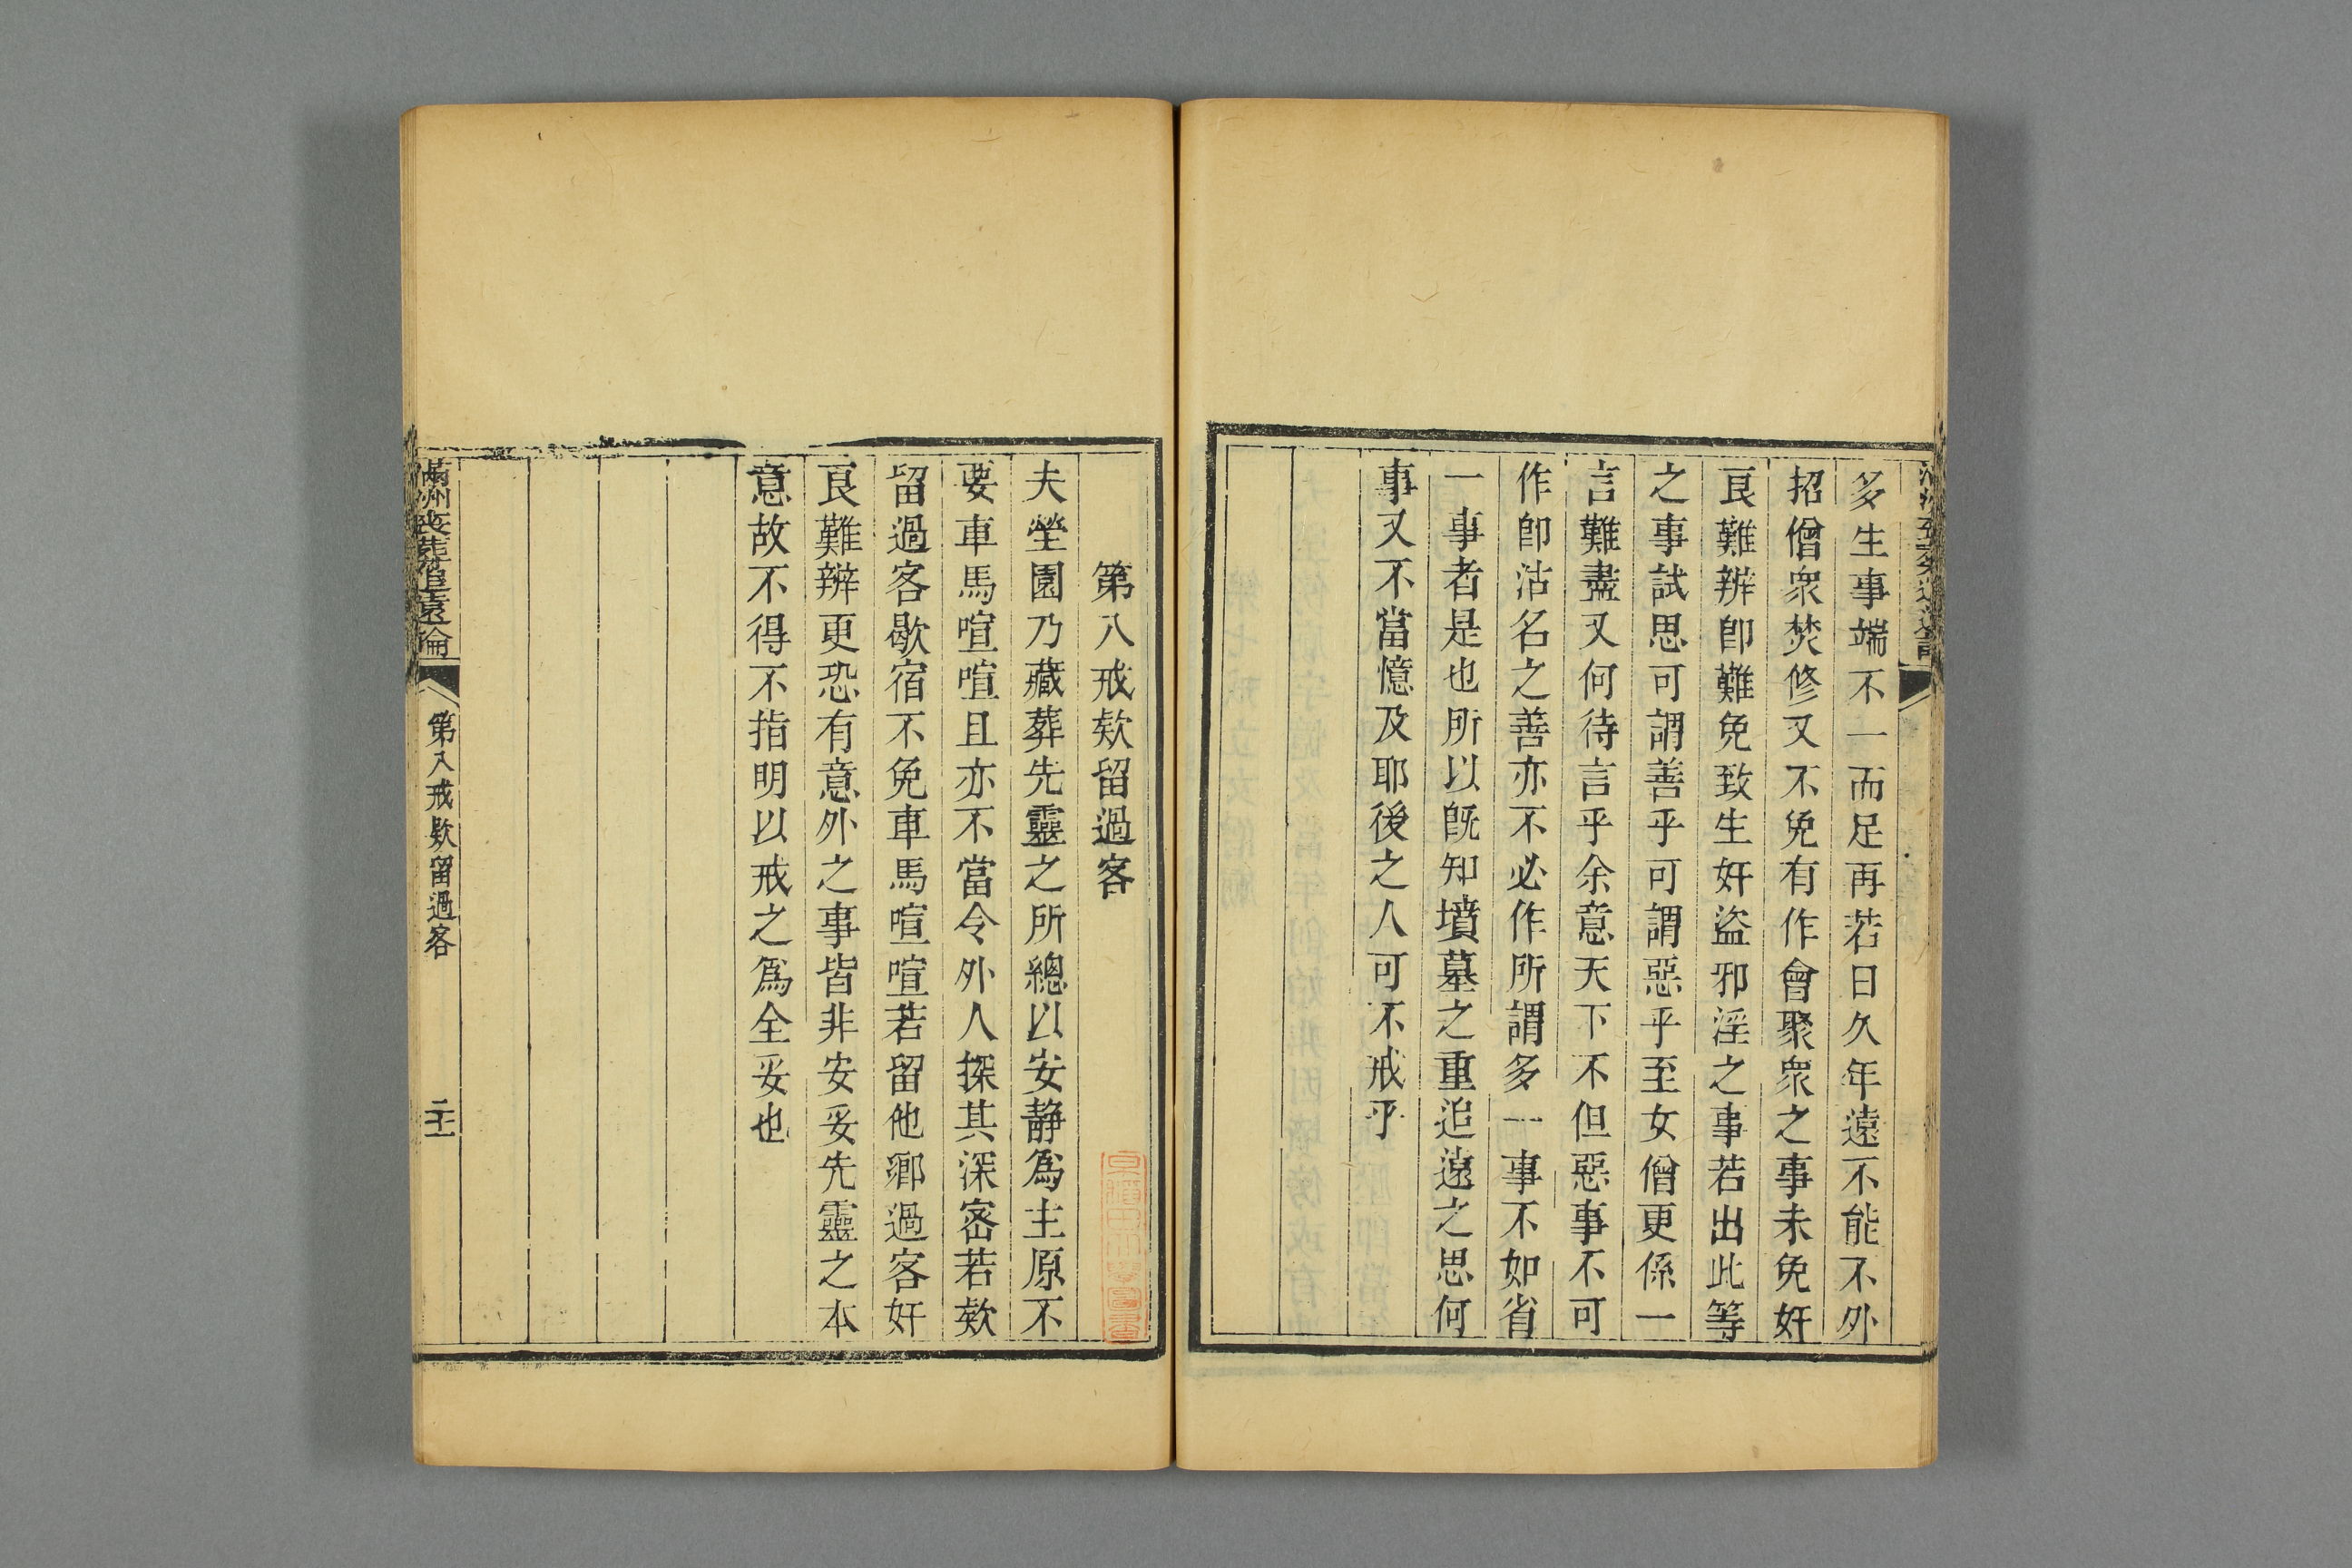 多生事端不一而足再若日久年遠不能不外
招僧衆焚修又不免有作會聚衆之事未免奸
良難辨卽難免致生奸盜邪淫之事若出此等
之事試思可謂善乎可謂惡乎至女僧更係一
言難盡又何待言乎余意天下不但惡事不可
作卽沽名之善亦不必作所謂多一事不如省
一事者是也所以旣知墳墓之重追遠之思何
事又不當憶及耶後之人可不戒乎
第八戒欵留過客
夫塋園乃藏葬先靈之所總以安靜爲主原不
要車馬喧喧且亦不當令外人探其深密若欵
留過客歇宿不免車馬喧喧若留他鄉過客奸
良難辨更恐有意外之事皆非安妥先靈之本
意故不得不指明以戒之爲全妥也
滿洲喪葬追遠論
第八戒欵留過客
二十一